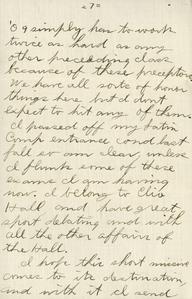 "7"
'09 simply has to work
twice as hard as any
other preceeding class
because of these preceptors.
We have all sorts of honor
things here but I dont
expect to hit any of them.
I passed off my Latin
Comp entrance cond last
fall so am clear, unless
I flunk some of these
exams I am having
now. I belong to Clio
Hall and have great
sport debating and with
all the other affairs of
the Hall.
I hope this short missive
comes to its destination
and with it I send